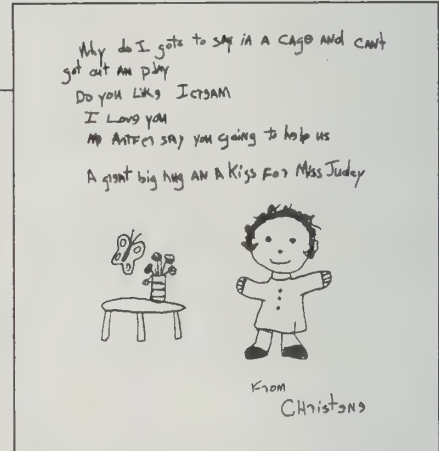 Why do I gots to say in A CAge AND CANt
got out AN play
Do you Like IcreAM
I Love you
My Antfer SAy you going to help us
A great big hug AN A Kiss For Miss Judey
From
CHristene